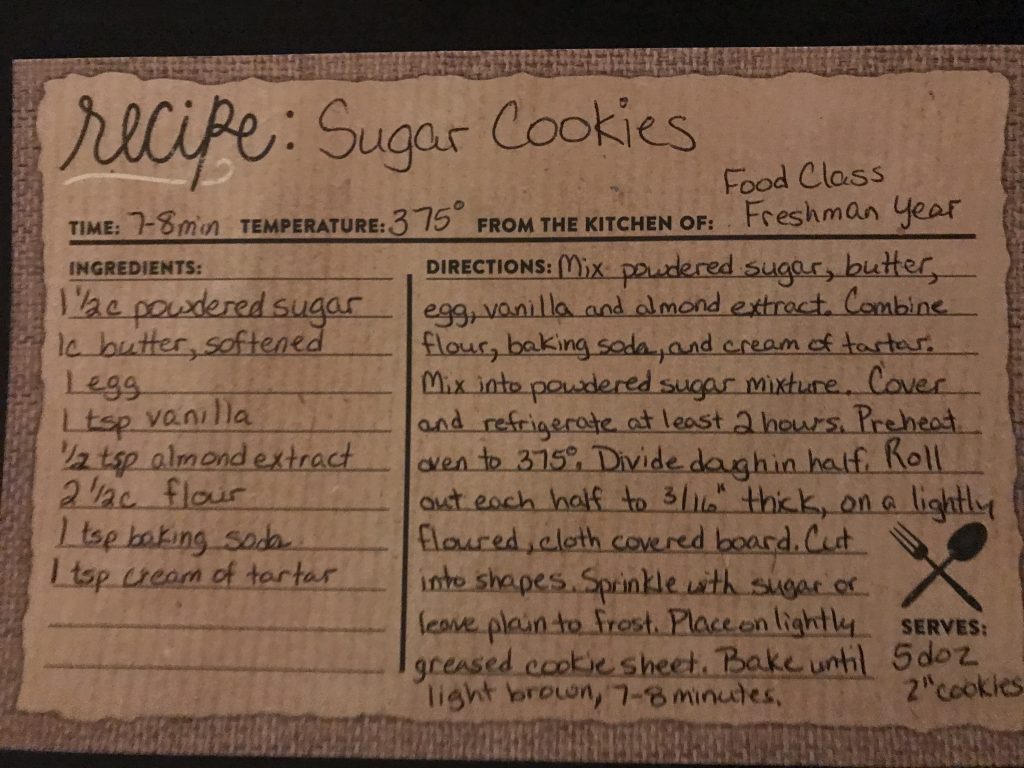 recipe: Sugar Cookies
Food Class
TIME: 7-8min TEMPERATURE: 375° FROM THE KITCHEN OF: Freshman Year
INGREDIENTS:
1 1/2c powdered sugar
1c butter, softened
1 egg
1 tsp vanilla
1/2 tsp almond extract
2 1/2c flour
1 tsp baking soda
1 tsp cream of tartar
DIRECTIONS: Mix powdered sugar, butter,
egg, vanilla and almond extract. Combine
flour, baking soda, and cream of tartar.
Mix into powdered sugar mixture. Cover
and refrigerate at least 2 hours. Preheat
oven to 375°. Divide dough in half. Roll
out each half to 3/16" thick, on a lightly
floured, cloth covered board. Cut
into shapes. Sprinkle with sugar or
leave plain to frost. Place on lightly
greased cookie sheet. Bake until
light brown, 7-8 minutes.
SERVES:
5 doz
2" cookies